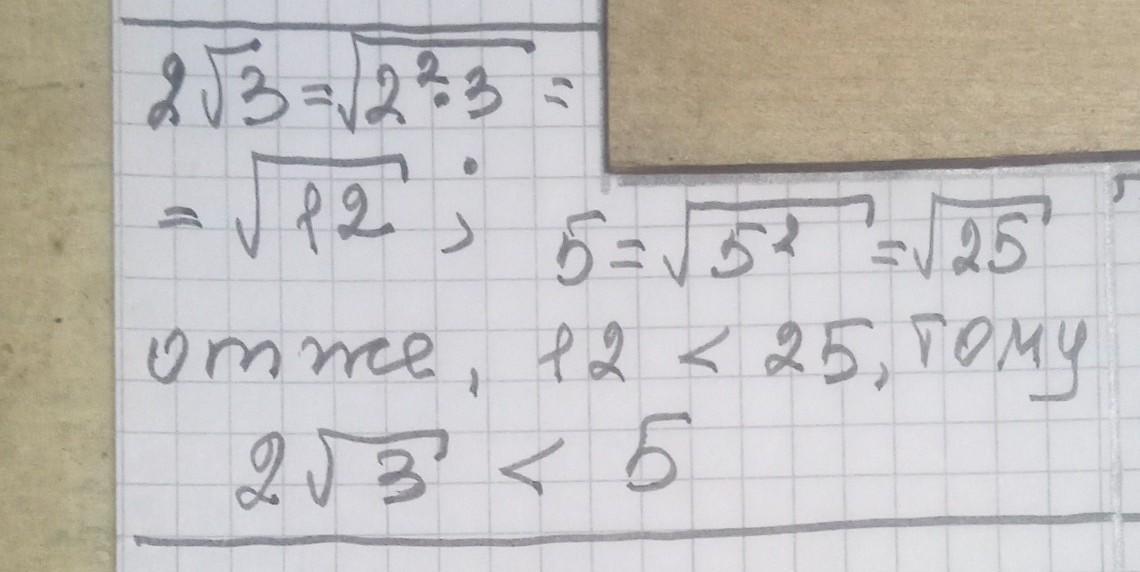 2√3 = √2²·3 =
= √12 ;
5 = √5² = √25
отже, 12 < 25, тому
2√3 < 5